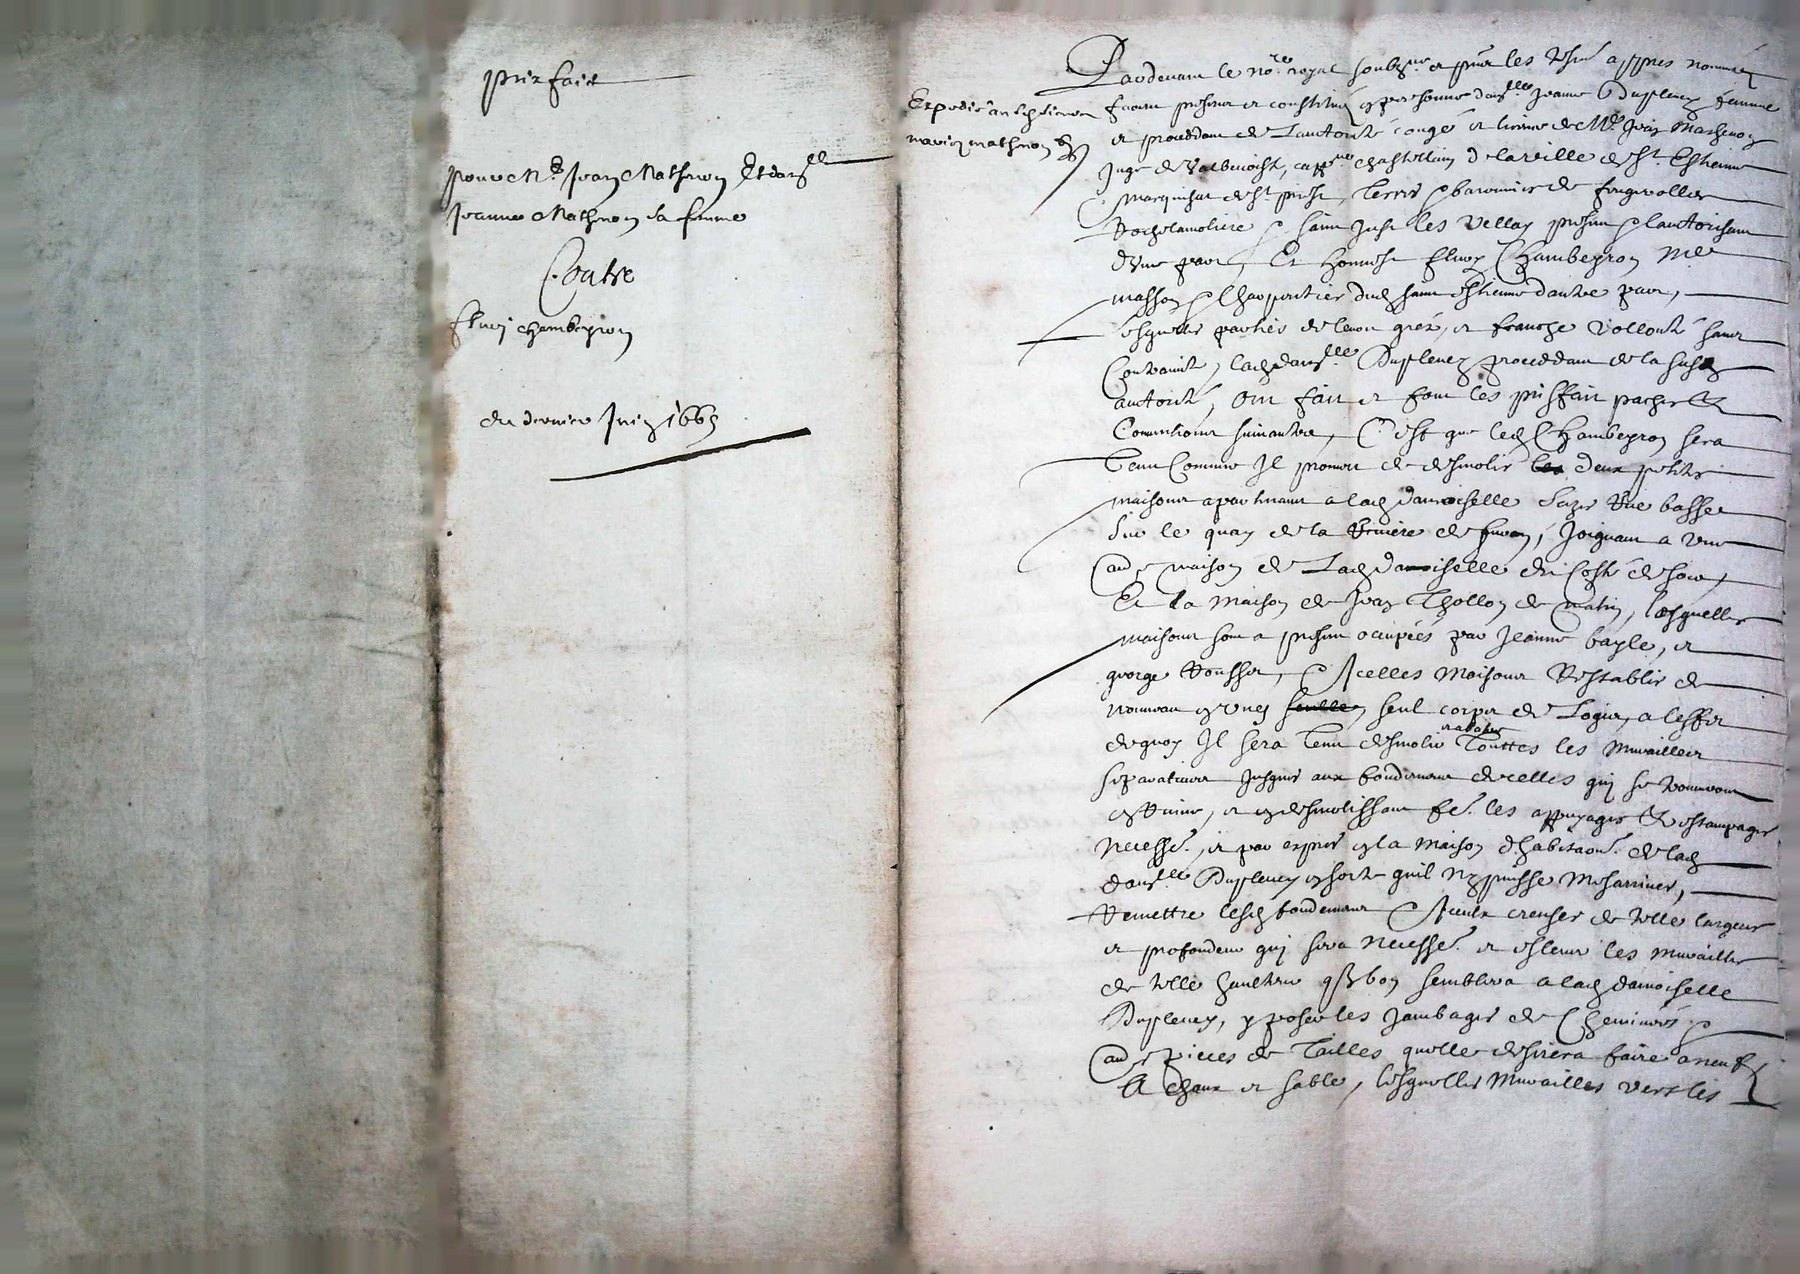 prix faict
pour Mr Jean Mathevon Et dam.lle
Jeanne Mathevon sa femme
Contre
fleury chambeyron
du dernier Juin 1665
Expedié au
Pardevant le no.re royal soubz.né et p̃nt les tesm̃ appres nommés
furent présent et constitués en personne dam.lle Jeanne Dupleney femme
et proceddant de L'auctorité congé et licence de M.e Jean Mathevon
Juge de Valbenoiste, cappne chastellain de la ville de St Estienne
Marquisat de St priest, terres & baronnies de feugerolles
Rochelamoliere & Saint Just les Vellay present & lauctorisant
d'Une part, Et Honneste fleury Chambeyron Me
masson & Charpentier dud saint Estienne d'autre part,
Lesquelles parties de leur gréz, et franche Vollonté sans
Contrainte, lad dam.lle Dupleney proceddant de la susd
auctorité, Ont fait et font les prisfait paches &
Conventions suivantes, C'est que led Chambeyron sera
tenu Comme Il promet de desmolir deux petites
maisons apartenant a lad damoiselle Size Rue basse
Sur le quay de la Riviere de furan, Joignant a Une
autre maison de Lad damoiselle du Costé de soir,
Et la maison de Jean Thollon de matin, lesquelles
maisons sont a present occupées par Jeanne bayle, et
george Rousset, & Icelles Maisons Restablir de
nouveau en Ung seul corps de Logis, a leffet
de quoy Il sera tenu desmolir Touttes les Murailles
separatives Jusques aux fondement dicelles quy se trouveront
en Ruine, et en desmolissant fe. les appuyages & estampages
Necesse.s, et par exprés en la maison d'habita͠on de lad
dam.lle Dupleney en sorte quil Ny puisse Mesarriver,
Remettre lesd fondement & Iceulx creuser de telle largeur
et profondeur quy sera Necesse. et eslever les murailles
de telle haulteur que bon semblera a lad damoiselle
Dupleney, y poser les Jambages de Cheminées &
autres pieces de Tailles quelle desirera faire a neuf
A chaux et sable, lesquelles Murailles vers les